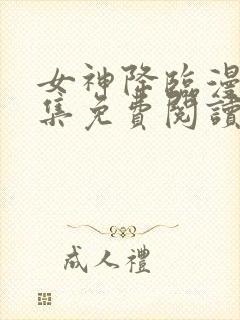 女神降臨漫
集免費閱讀
成人禮